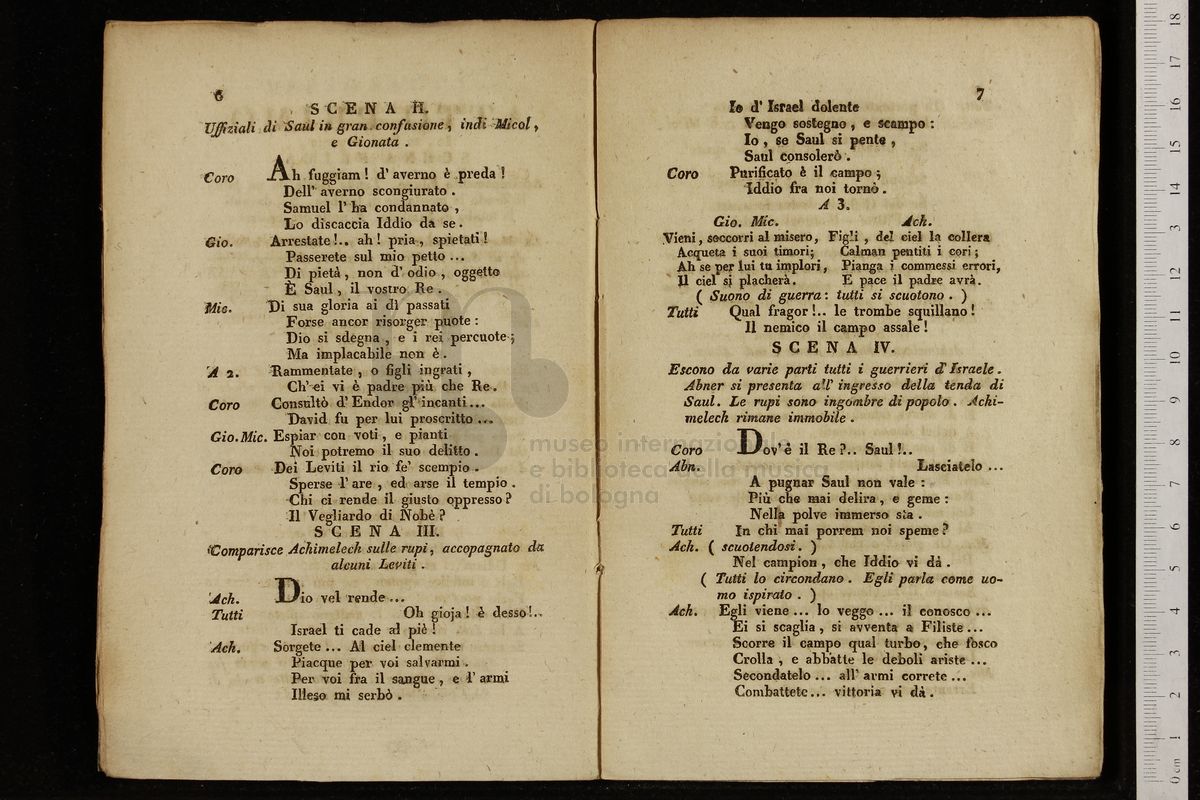 6
SCENA II.
Uffiziali di Saul in gran confusione, indi Micol,
e Gionata.
Coro Ah fuggiam! d' averno è preda!
Dell' averno scongiurato.
Samuel l' ha condannato,
Lo discaccia Iddio da se.
Gio. Arrestate!.. ah! pria, spietati!
Passerete sul mio petto...
Di pietà, non d' odio, oggetto
È Saul, il vostro Re.
Mic. Di sua gloria ai dì passati
Forse ancor risorger puote:
Dio si sdegna, e i rei percuote;
Ma implacabile non è.
A 2. Rammentate, o figli ingrati,
Ch' ei vi è padre più che Re.
Coro Consultò d' Endor gl' incanti...
David fu per lui proscritto...
Gio. Mic. Espiar con voti, e pianti
Noi potremo il suo delitto.
Coro Dei Leviti il rio fe' scempio.
Sperse l' are, ed arse il tempio.
Chi ci rende il giusto oppresso?
Il Vegliardo di Nobè?
SCENA III.
Comparisce Achimelech sulle rupi, accopagnato da
alcuni Leviti.
Ach. Dio vel rende...
Tutti Oh gioja! è desso!..
Israel ti cade al piè!
Ach. Sorgete... Al ciel clemente
Piacque per voi salvarmi.
Per voi fra il sangue, e l' armi
Illeso mi serbò.
7
Io d' Israel dolente
Vengo sostegno, e scampo:
Io, se Saul si pente,
Saul consolerò.
Coro Purificato è il campo;
Iddio fra noi tornò.
A 3.
Gio. Mic. Ach.
Vieni, soccorri al misero, Figli, del ciel la collera
Acqueta i suoi timori; Calman pentiti i cori;
Ah se per lui tu implori, Pianga i commessi errori,
Il ciel si placherà. E pace il padre avrà.
( Suono di guerra: tutti si scuotono. )
Tutti Qual fragor!.. le trombe squillano!
Il nemico il campo assale!
SCENA IV.
Escono da varie parti tutti i guerrieri d' Israele.
Abner si presenta all' ingresso della tenda di
Saul. Le rupi sono ingombre di popolo. Achi-
melech rimane immobile.
Coro Dov' è il Re?.. Saul!..
Abn. Lasciatelo...
A pugnar Saul non vale:
Più che mai delira, e geme:
Nella polve immerso sta.
Tutti In chi mai porrem noi speme?
Ach. ( scuotendosi. )
Nel campion, che Iddio vi dà.
( Tutti lo circondano. Egli parla come uo-
mo ispirato. )
Ach. Egli viene... lo veggo... il conosco...
Ei si scaglia, si avventa a Filiste...
Scorre il campo qual turbo, che fosco
Crolla, e abbatte le deboli ariste...
Secondatelo... all' armi correte...
Combattete... vittoria vi dà.
museo internazionale
e biblioteca della musica
di bologna
0 cm 1 2 3 4 5 6 7 8 9 10 11 12 13 14 15 16 17 18